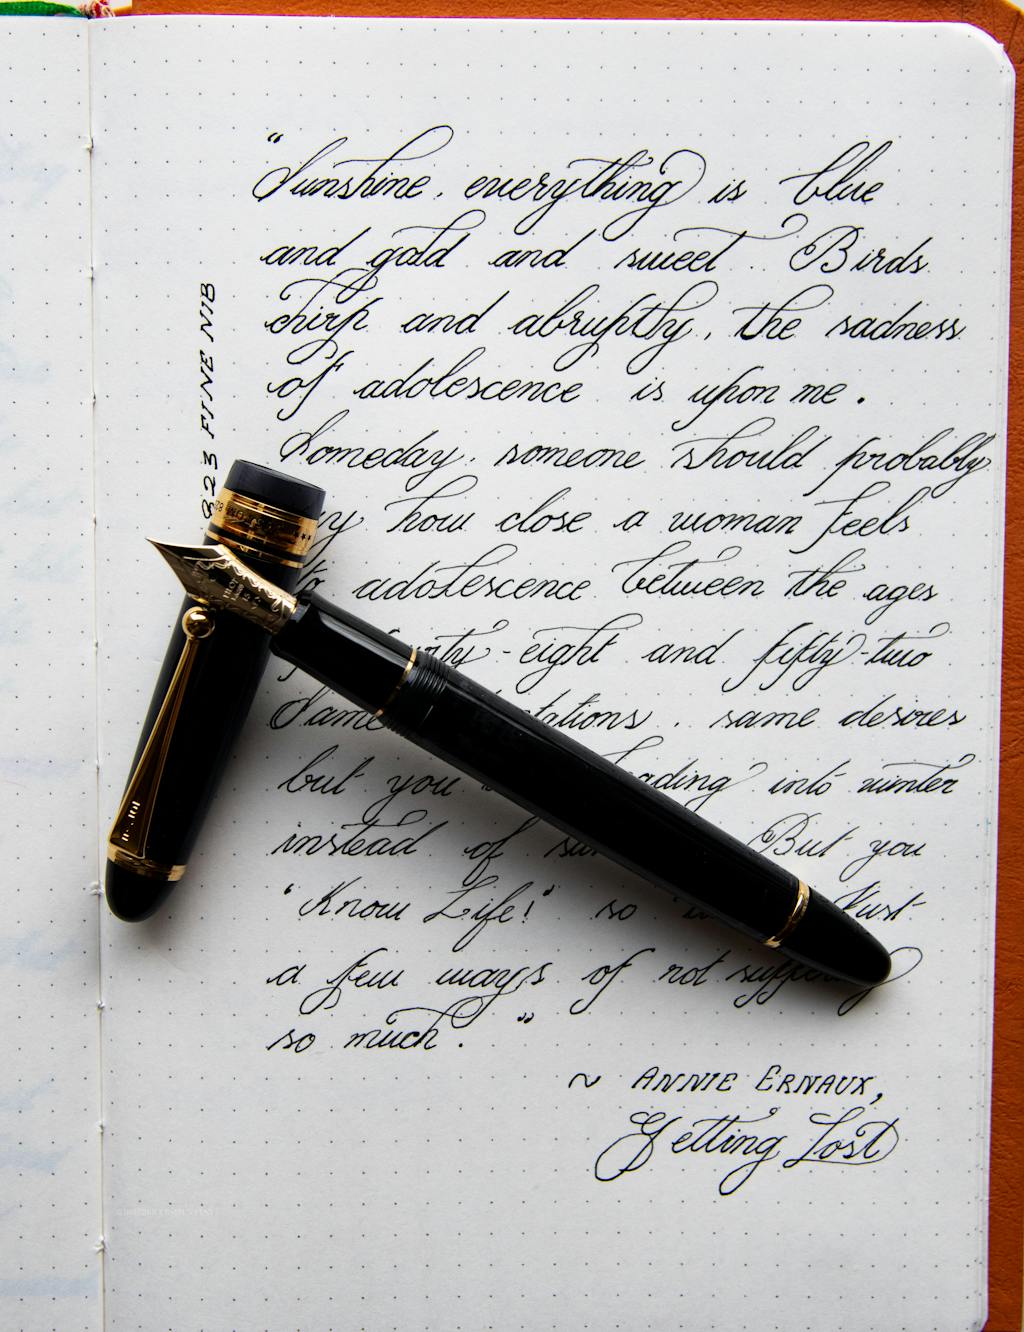 "Sunshine, everything is blue
and gold and sweet. Birds
chirp and abruptly, the sadness
of adolescence is upon me.
Someday, someone should probably
how close a woman feels
adolescence between the ages
-eight and fifty-two
Same same desires
but you into winter
instead of But you
"Know Life!" so Just
a few ways of not
so much."
~ ANNIE ERNAUX,
Getting Lost
823 FINE NIB